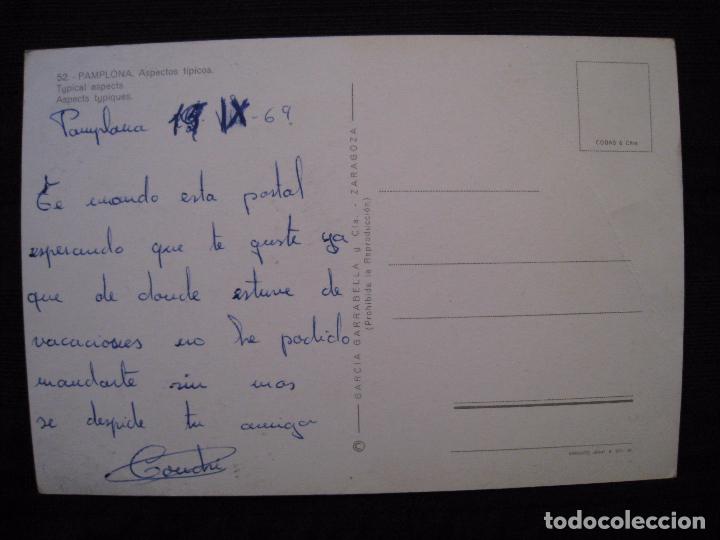 52 - PAMPLONA. Aspectos típicos.
Typical aspects.
Aspects typiques.
Pamplona 15 IX - 69
Te mando esta postal
esperando que te guste ya
que de donde estuve de
vacaciones no he podido
mandarte sin mas
se despide tu amiga
Conchi
© GARCIA GARRABELLA y Cía. - ZARAGOZA
(Prohibida la Reproducción)
todocoleccion